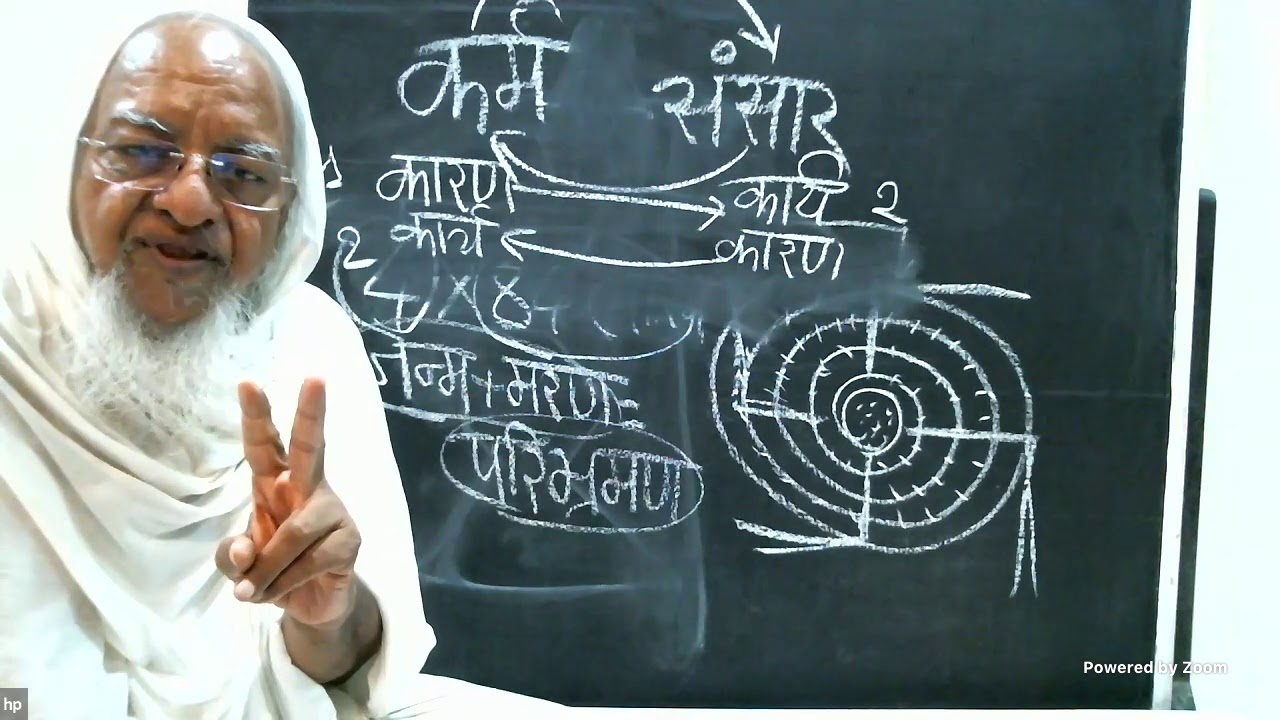 कर्म संसार
1 कारण कार्य 2
2 कार्य कारण
जन्म + मरण =
परिभ्रमण
Powered by Zoom
hp